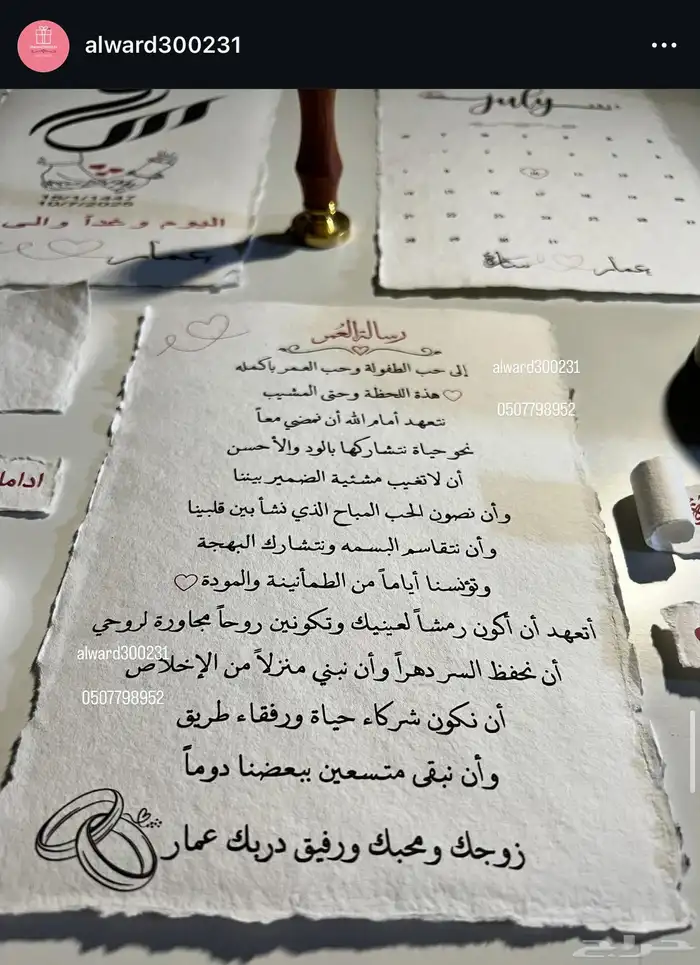 alward300231
18/1/1447
10/7/2025
اليوم وغداً والى
عمار
July
عمار سارة
رسالة العُمر
إلى حب الطفولة وحب العمر بأكمله
هذة اللحظة وحتى المشيب
نتعهد أمام الله أن نمضي معاً
نحو حياة نتشاركها بالود والأحسن
أن لاتغيب مشئية الضمير بيننا
وأن نصون الحب المباح الذي نشأ بين قلبينا
وأن نتقاسم البسمه ونتشارك البهجة
وتؤنسنا أياماً من الطمأنينة والمودة
أتعهد أن أكون رمشاً لعينيك وتكونين روحاً مجاورة لروحي
أن نحفظ السر دهراً وأن نبني منزلاً من الإخلاص
أن نكون شركاء حياة ورفقاء طريق
وأن نبقى متسعين ببعضنا دوماً
زوجك ومحبك ورفيق دربك عمار
alward300231
0507798952
alward300231
0507798952
حراج